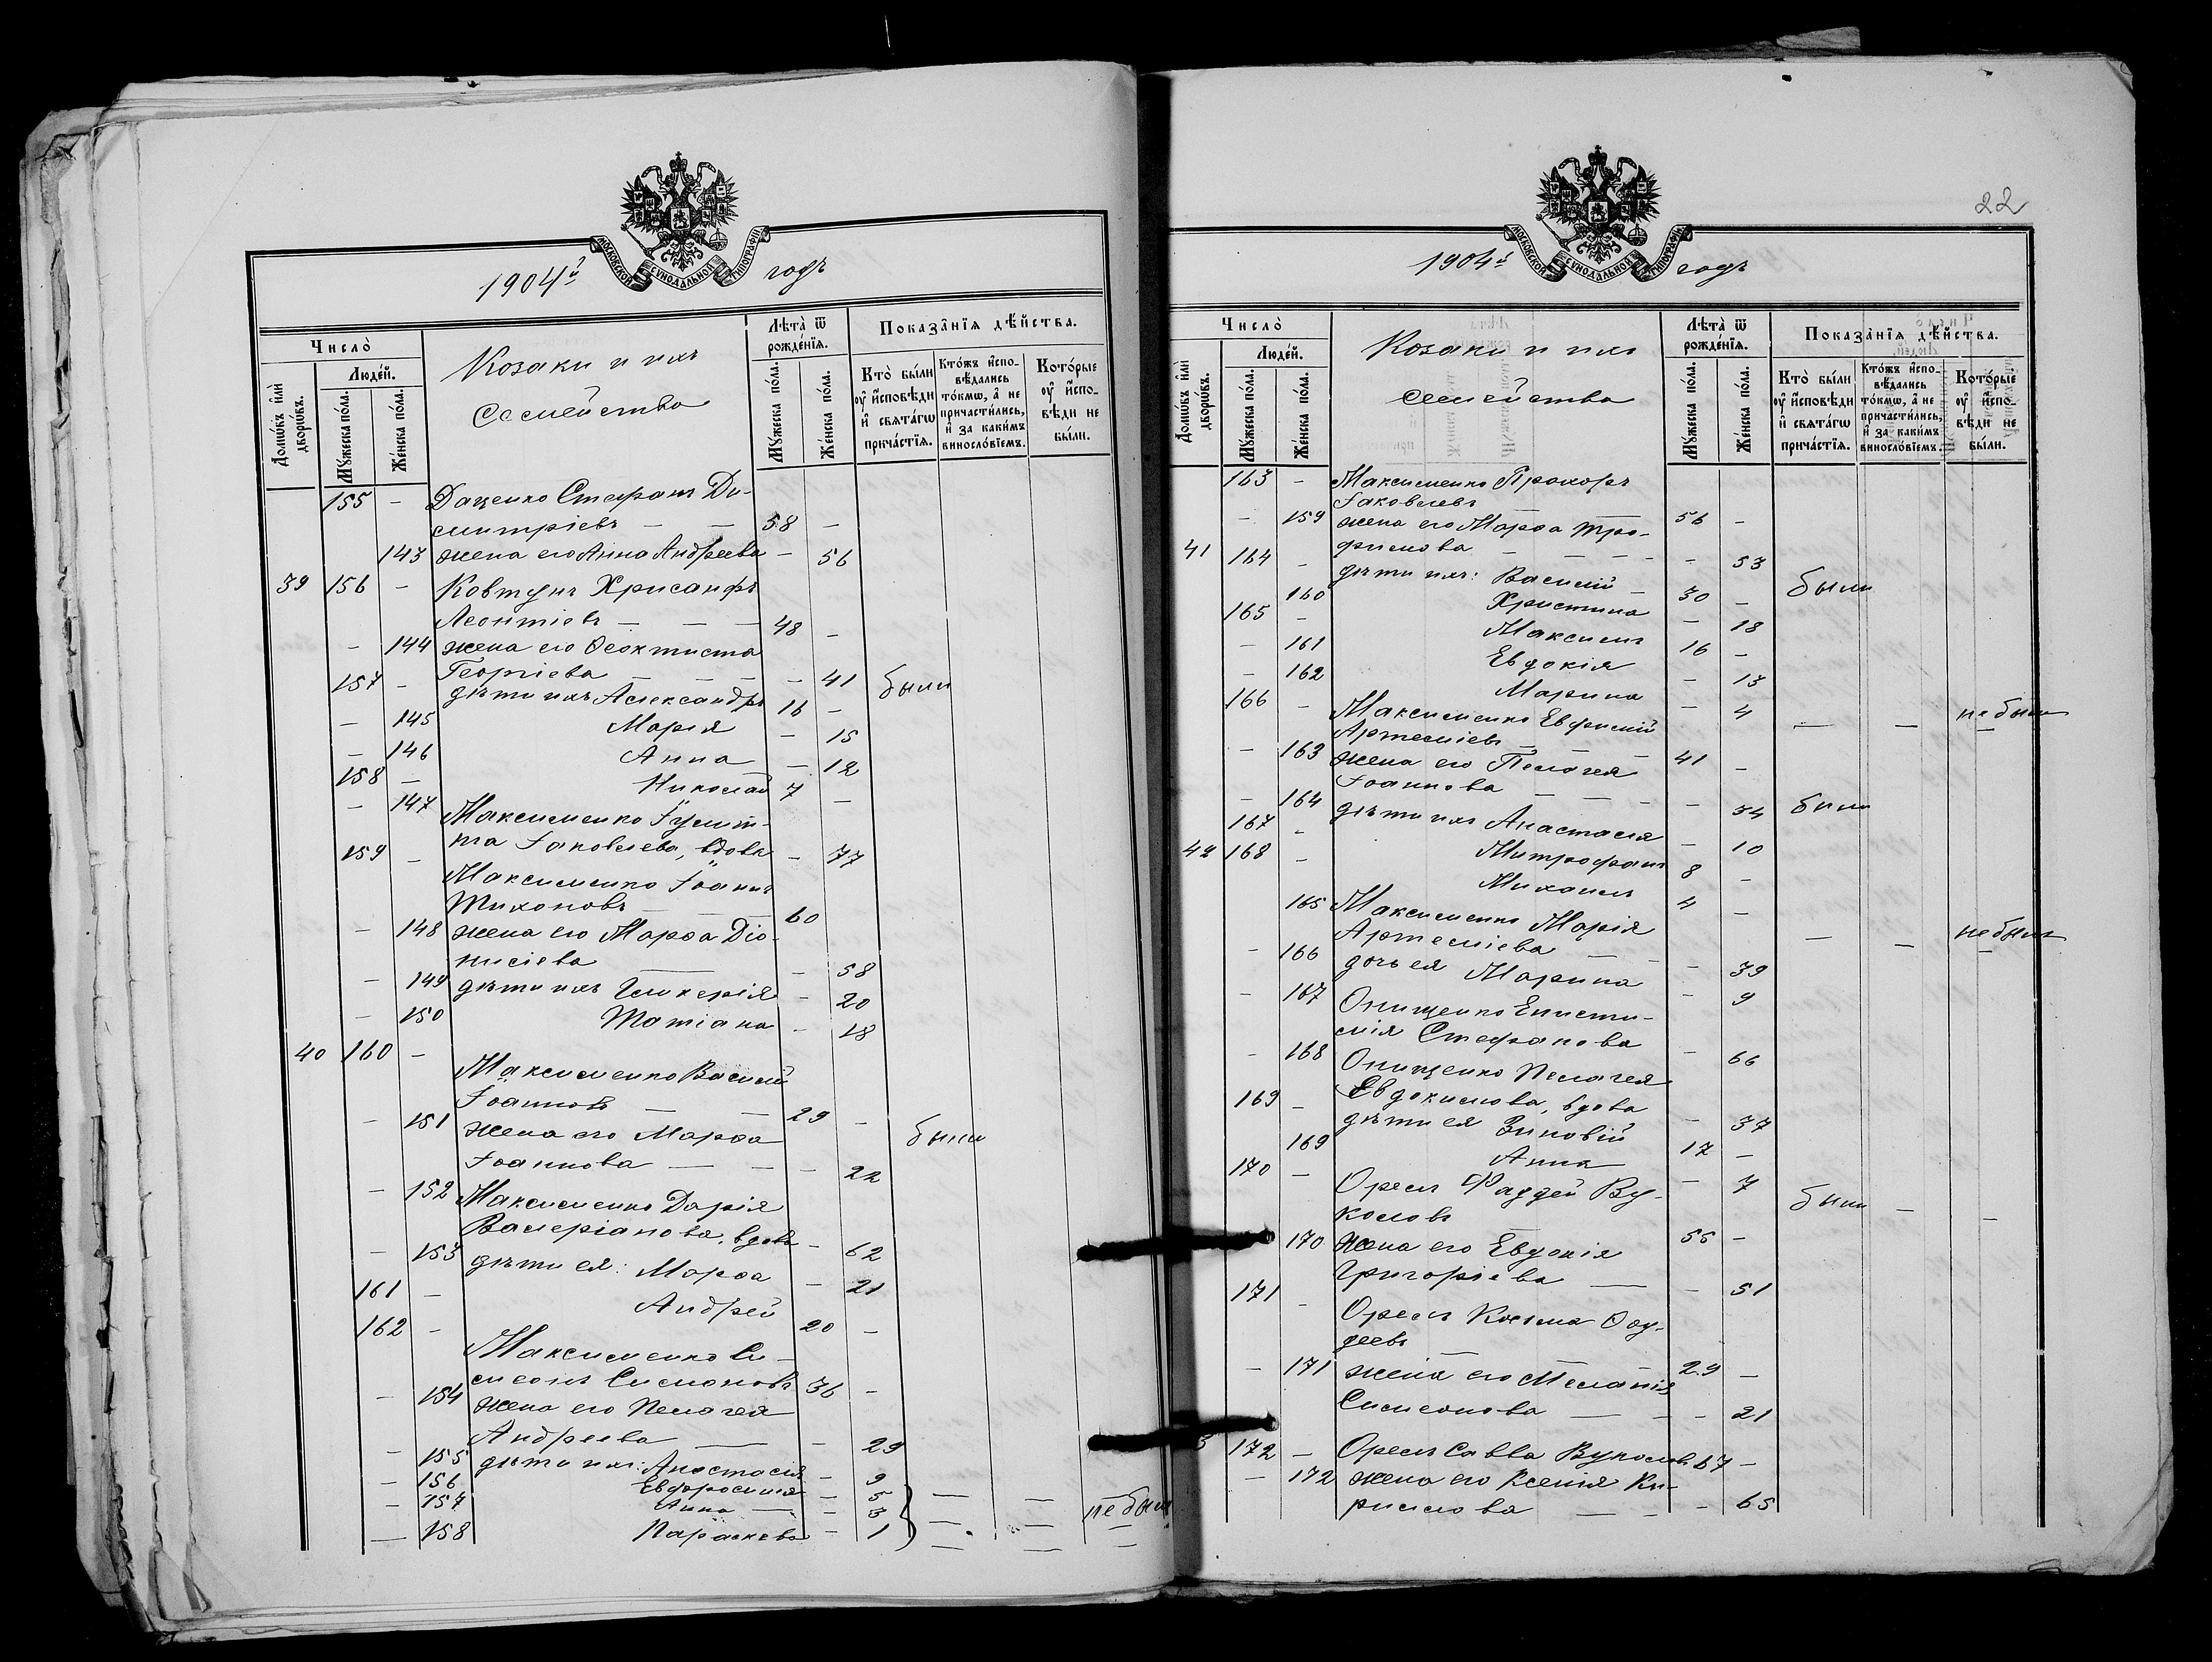 1904й годъ
МОСКОВСКОЙ СУНОДАЛЬНОЙ ТИПОГРАФІИ
Число̀
Домѡ́въ и҆лѝ дворѡ́въ.
Люде́й.
Мꙋ́жеска по́ла.
Же́нска по́ла.
Козаки и ихъ
семейства
Лѣта̀ ѿ рожде́нїѧ.
Мꙋ́жеска по́ла.
Же́нска по́ла.
Показа̑нїѧ дѣ́йства.
Кто̀ бы́ли ᲂу҆ и҆́сповѣди и҆ свѧта́гѡ прича́стїѧ.
Кто́жъ и҆сповѣ́дались то́кмѡ, а҆ не причасти́лись, и҆ за каки́мъ винослові́емъ.
Кото́рые ᲂу҆ и҆́сповѣди не бы́ли.
155 - Даценко Стефанъ Ди-
митріевъ — — 58 -
143 жена его Анна Андреева - 56
39 156 - Ковтунъ Хрисанфъ
Леонтіевъ — — — 48 -
- 144 жена его Ѳеоктиста
Георгіева — — — - 41 были
157 - дѣти ихъ Александръ 16 -
- 145 Марія - 15
- 146 Анна - 12
158 - Николай 7 -
- 147 Максименко
Іаковлева, вдова - 77
159 - Максименко Іоаннъ
Тихоновъ — 60
- 148 жена его Марѳа Діо-
нисіева — - 58
- 149 дѣти ихъ Гликерія - 20
- 150 Татіана - 18
40 160 - Максименко Василій
Іоанновъ — — 29 -
- 151 жена его Марѳа были
Іоаннова — — - 22
- 152 Максименко Дарія
Валеріанова, вдова - 62
- 153 дѣти ея: Марѳа - 21
161 - Андрей 20 -
162 - Максименко Си-
меонъ Симоновъ 36 -
- 154 жена его Пелагея
Андреева — - 29
- 155 дѣти ихъ: Анастасія - 9
- 156 Евфросинія - 5
- 157 Анна - 3 не были
- 158 Параскева - 1
22
1904й годъ
МОСКОВСКОЙ СУНОДАЛЬНОЙ ТИПОГРАФІИ
Число̀
Домѡ́въ и҆лѝ дворѡ́въ.
Люде́й.
Мꙋ́жеска по́ла.
Же́нска по́ла.
Козаки и ихъ
семейства
Лѣта̀ ѿ рожде́нїѧ.
Мꙋ́жеска по́ла.
Же́нска по́ла.
Показа̑нїѧ дѣ́йства.
Кто̀ бы́ли ᲂу҆ и҆́сповѣди и҆ свѧта́гѡ прича́стїѧ.
Кто́жъ и҆сповѣ́дались то́кмѡ, а҆ не причасти́лись, и҆ за каки́мъ винослові́емъ.
Кото́рые ᲂу҆ и҆́сповѣди не бы́ли.
163 - Максименко Прохоръ
Іаковлевъ — — 56 -
- 159 жена его Марѳа Тро-
фимова — — — - 53
41 164 - дѣти ихъ: Василій 30 - были
160 Христина - 18
165 - Максимъ 16 -
- 161 Евдокія - 13
- 162 Марина - 4 — — не были
166 - Максименко Евфимій
Артеміевъ — — — 41 -
- 163 жена его Пелагея
Іоаннова — — — - 34 были
- 164 дѣти ихъ Анастасія - 10
167 - Митрофанъ 8 -
42 168 - Михаилъ 4 - — — не были
165 Максименко Марія
Артеміева — - 39
- 166 дочь ея Марина - 9
- 167 Онищенко Еписти-
мія Стефанова - 66
- 168 Онищенко Пелагея
Евдокимова, вдова - 37
169 - дѣти ея Зиновій 17 -
169 Анна - 7
170 - Орелъ Фаддей Ву- были
коловъ — 55 -
170 жена его Евдокія
Григоріева — - 51
171 - Орелъ Косьма Ѳад-
деевъ — — 29 -
- 171 жена его Меланія
Симеонова — - 21
3 172 - Орелъ Савва Вуколовъ 67 -
- 172 жена его Ксенія Ки-
риллова — — - 65